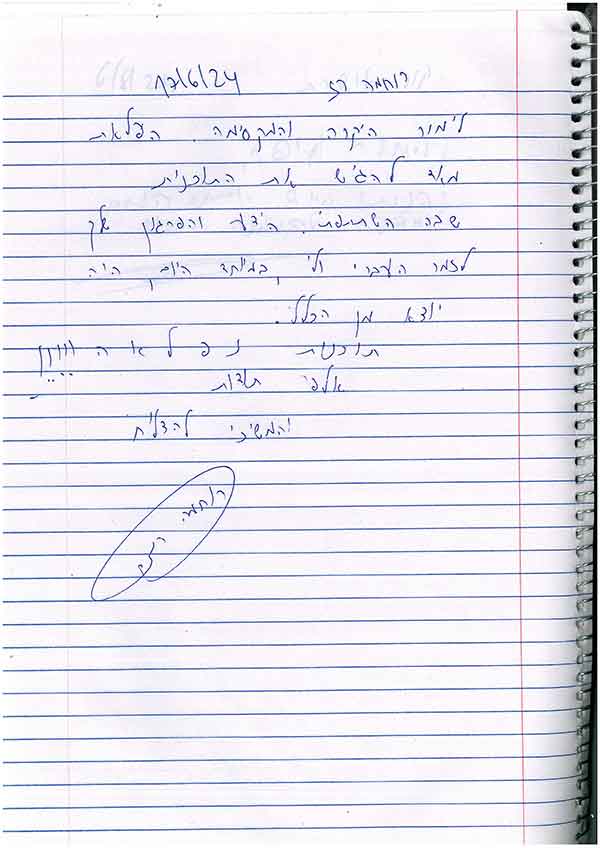 רוחמה רז 17/6/24
לימור היקרה והמקסימה. הפלאת
מאד להגיש את התוכנית
שבה השתתפתי. הידע והפרגון שלך
לזמר העברי ולי במיוחד היום, היה
יוצא מן הכלל.
תוכנית נ פ ל א ה
אלפי תודות
והמשיכי להצליח
רוחמה רז